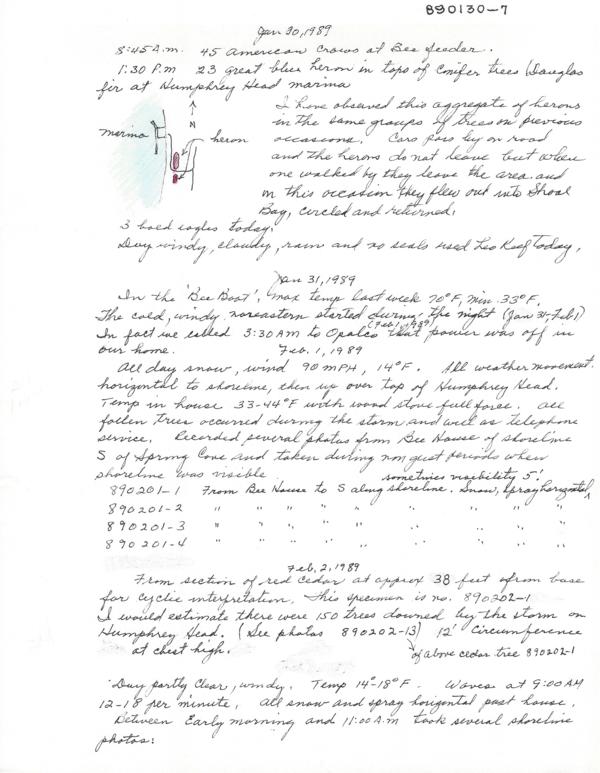 890130-7
Jan 30, 1989
8:45 A.m. 45 American Crows at Bee feeder.
1:30 P.m 23 great blue heron in tops of Conifer trees (Douglas
fir at Humphrey Head marina
I have observed this aggregate of herons
in the same groups of trees on previous
occasions. Cars pass by on road
and the herons do not leave but when
one walked by they leave the area and
on this occasion they flew out into Shoal
Bay, circled and returned.
N
marina
heron
3 bald eagles today.
Day windy, cloudy, rain and no seals used Leo Reef Today.
Jan 31, 1989
In the 'Bee Boat', max temp last week 70°F, min 33°F.
The cold, windy noreastern started during the night (Jan 31-Feb 1)
In fact we called 3:30 AM (Feb 1, 1989) to Opalco that power was off in
our home.
Feb. 1, 1989
All day snow, wind 90 mPH, 14°F. All weather movement
horizontal to shoreline, then up over top of Humphrey Head.
Temp in house 33-44°F with wood stove full force. All
fallen trees occurred during the storm and well as telephone
service. Recorded several photos from Bee House of shoreline
S of Spring Cove and taken during non gust periods when
shoreline was visible sometimes visibility 5'.
890201-1 From Bee House to S along shoreline. Snow, spray horizontal
890201-2 " " " " " " " "
890201-3 " " " " " " " "
890201-4 " " " " " " " "
Feb. 2, 1989
From section of red Cedar at approx 38 feet from base
for cyclic interpretation. This specimen is no. 890202-1
I would estimate there were 150 trees downed by the storm on
Humphrey Head. (See photos 890202-13) 12' Circumference
at chest high. of above cedar tree 890202-1
Day partly Clear, windy. Temp 14°-18°F. Waves at 9:00 AM
12-18 per minute. All snow and spray horizontal past house.
Between Early morning and 11:00 A.m took several shoreline
photos: